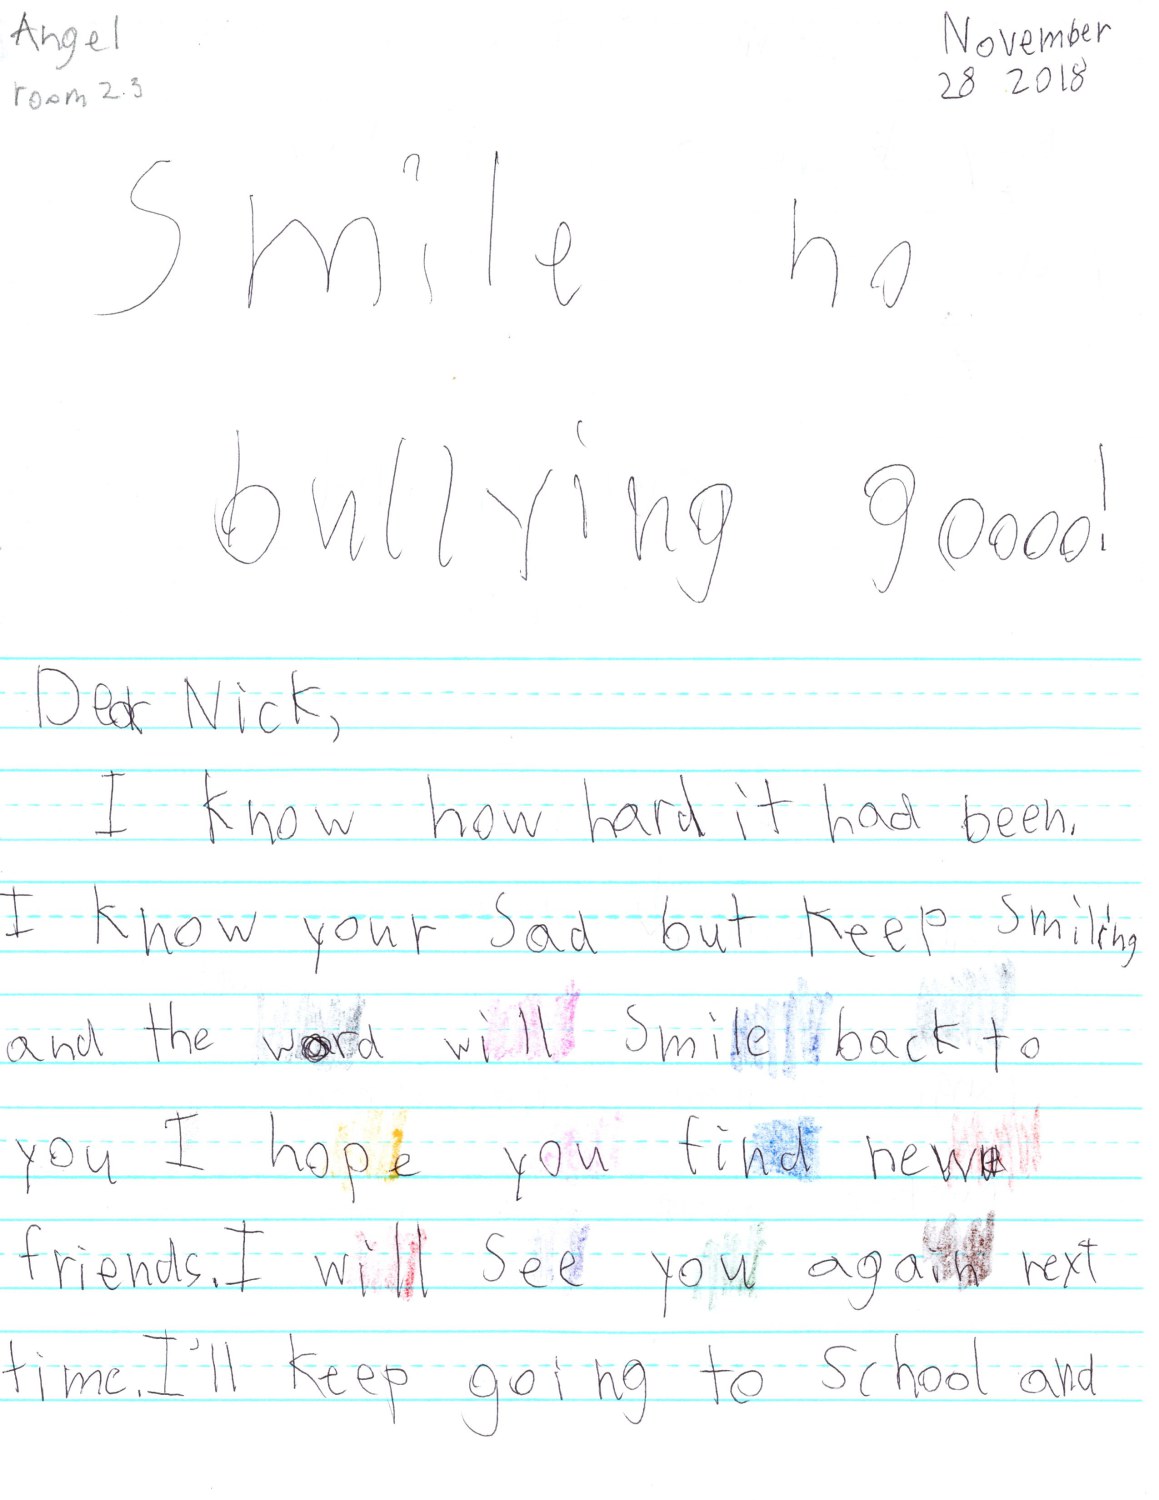 Angel
November
room 2.3
28 2018
Smile no
bullying goooo!
Dear Nick,
I know how hard it had been.
I know your Sad but keep smiling
and the word will smile back to
you I hope you find new
friends. I will see you again next
time. I'll keep going to School and